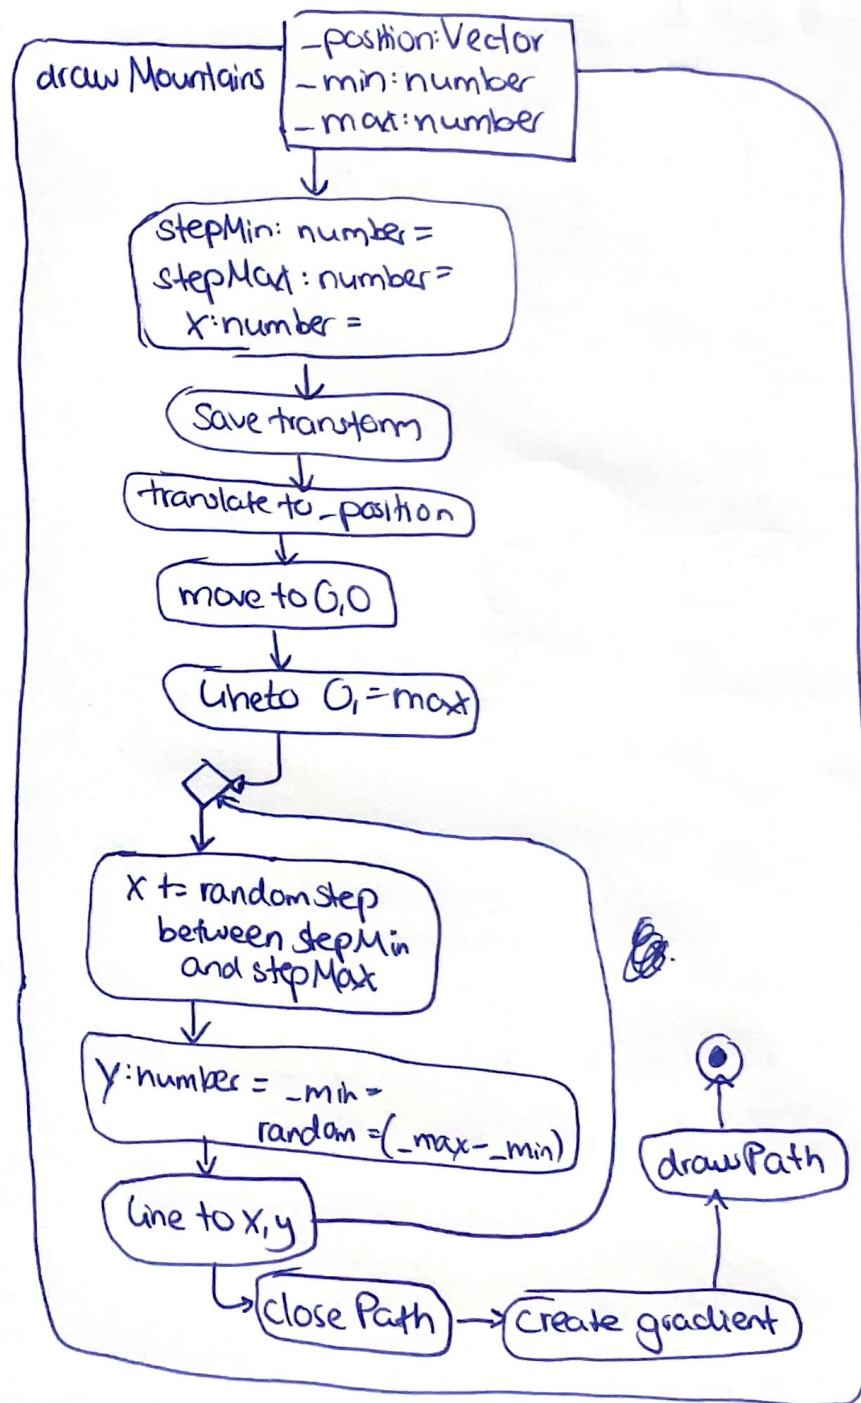 drawMountains
_position:Vector
_min:number
_max:number
stepMin: number=
stepMax: number=
x:number =
Save transform
translate to _position
move to 0,0
Lineto 0,=max
x += random step
between stepMin
and stepMax
y:number = _min -
random =(_max-_min)
line to x,y
close Path
create gradient
drawPath